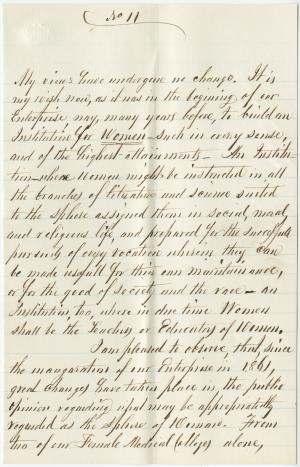 No 11
My views have undergone no change. It is
my wish now, as it was in the begining of our
Enterprise, nay, many years before, to build an
Institution for Women – such in every sense,
and of the highest attainments – An Institu-
tion – where Women might be instructed in all
the branches of Literature and science suited
to the sphere assigned them in social, moral,
and religious life, and prepared for the successful
pursuing of every vocation wherein they can
be made usefull for their own maintainance,
or for the good of society and the race – an
Institution, too, where in due time Women
shall be the Teachers or Educators of Women.
I am pleased to observe, that, since
the inauguration of our Enterprise in 1861,
great changes have taken place in the public
opinion regarding what may be appropriately
regarded as the sphere of Woman. From
two of our Female Medical Colleges alone,